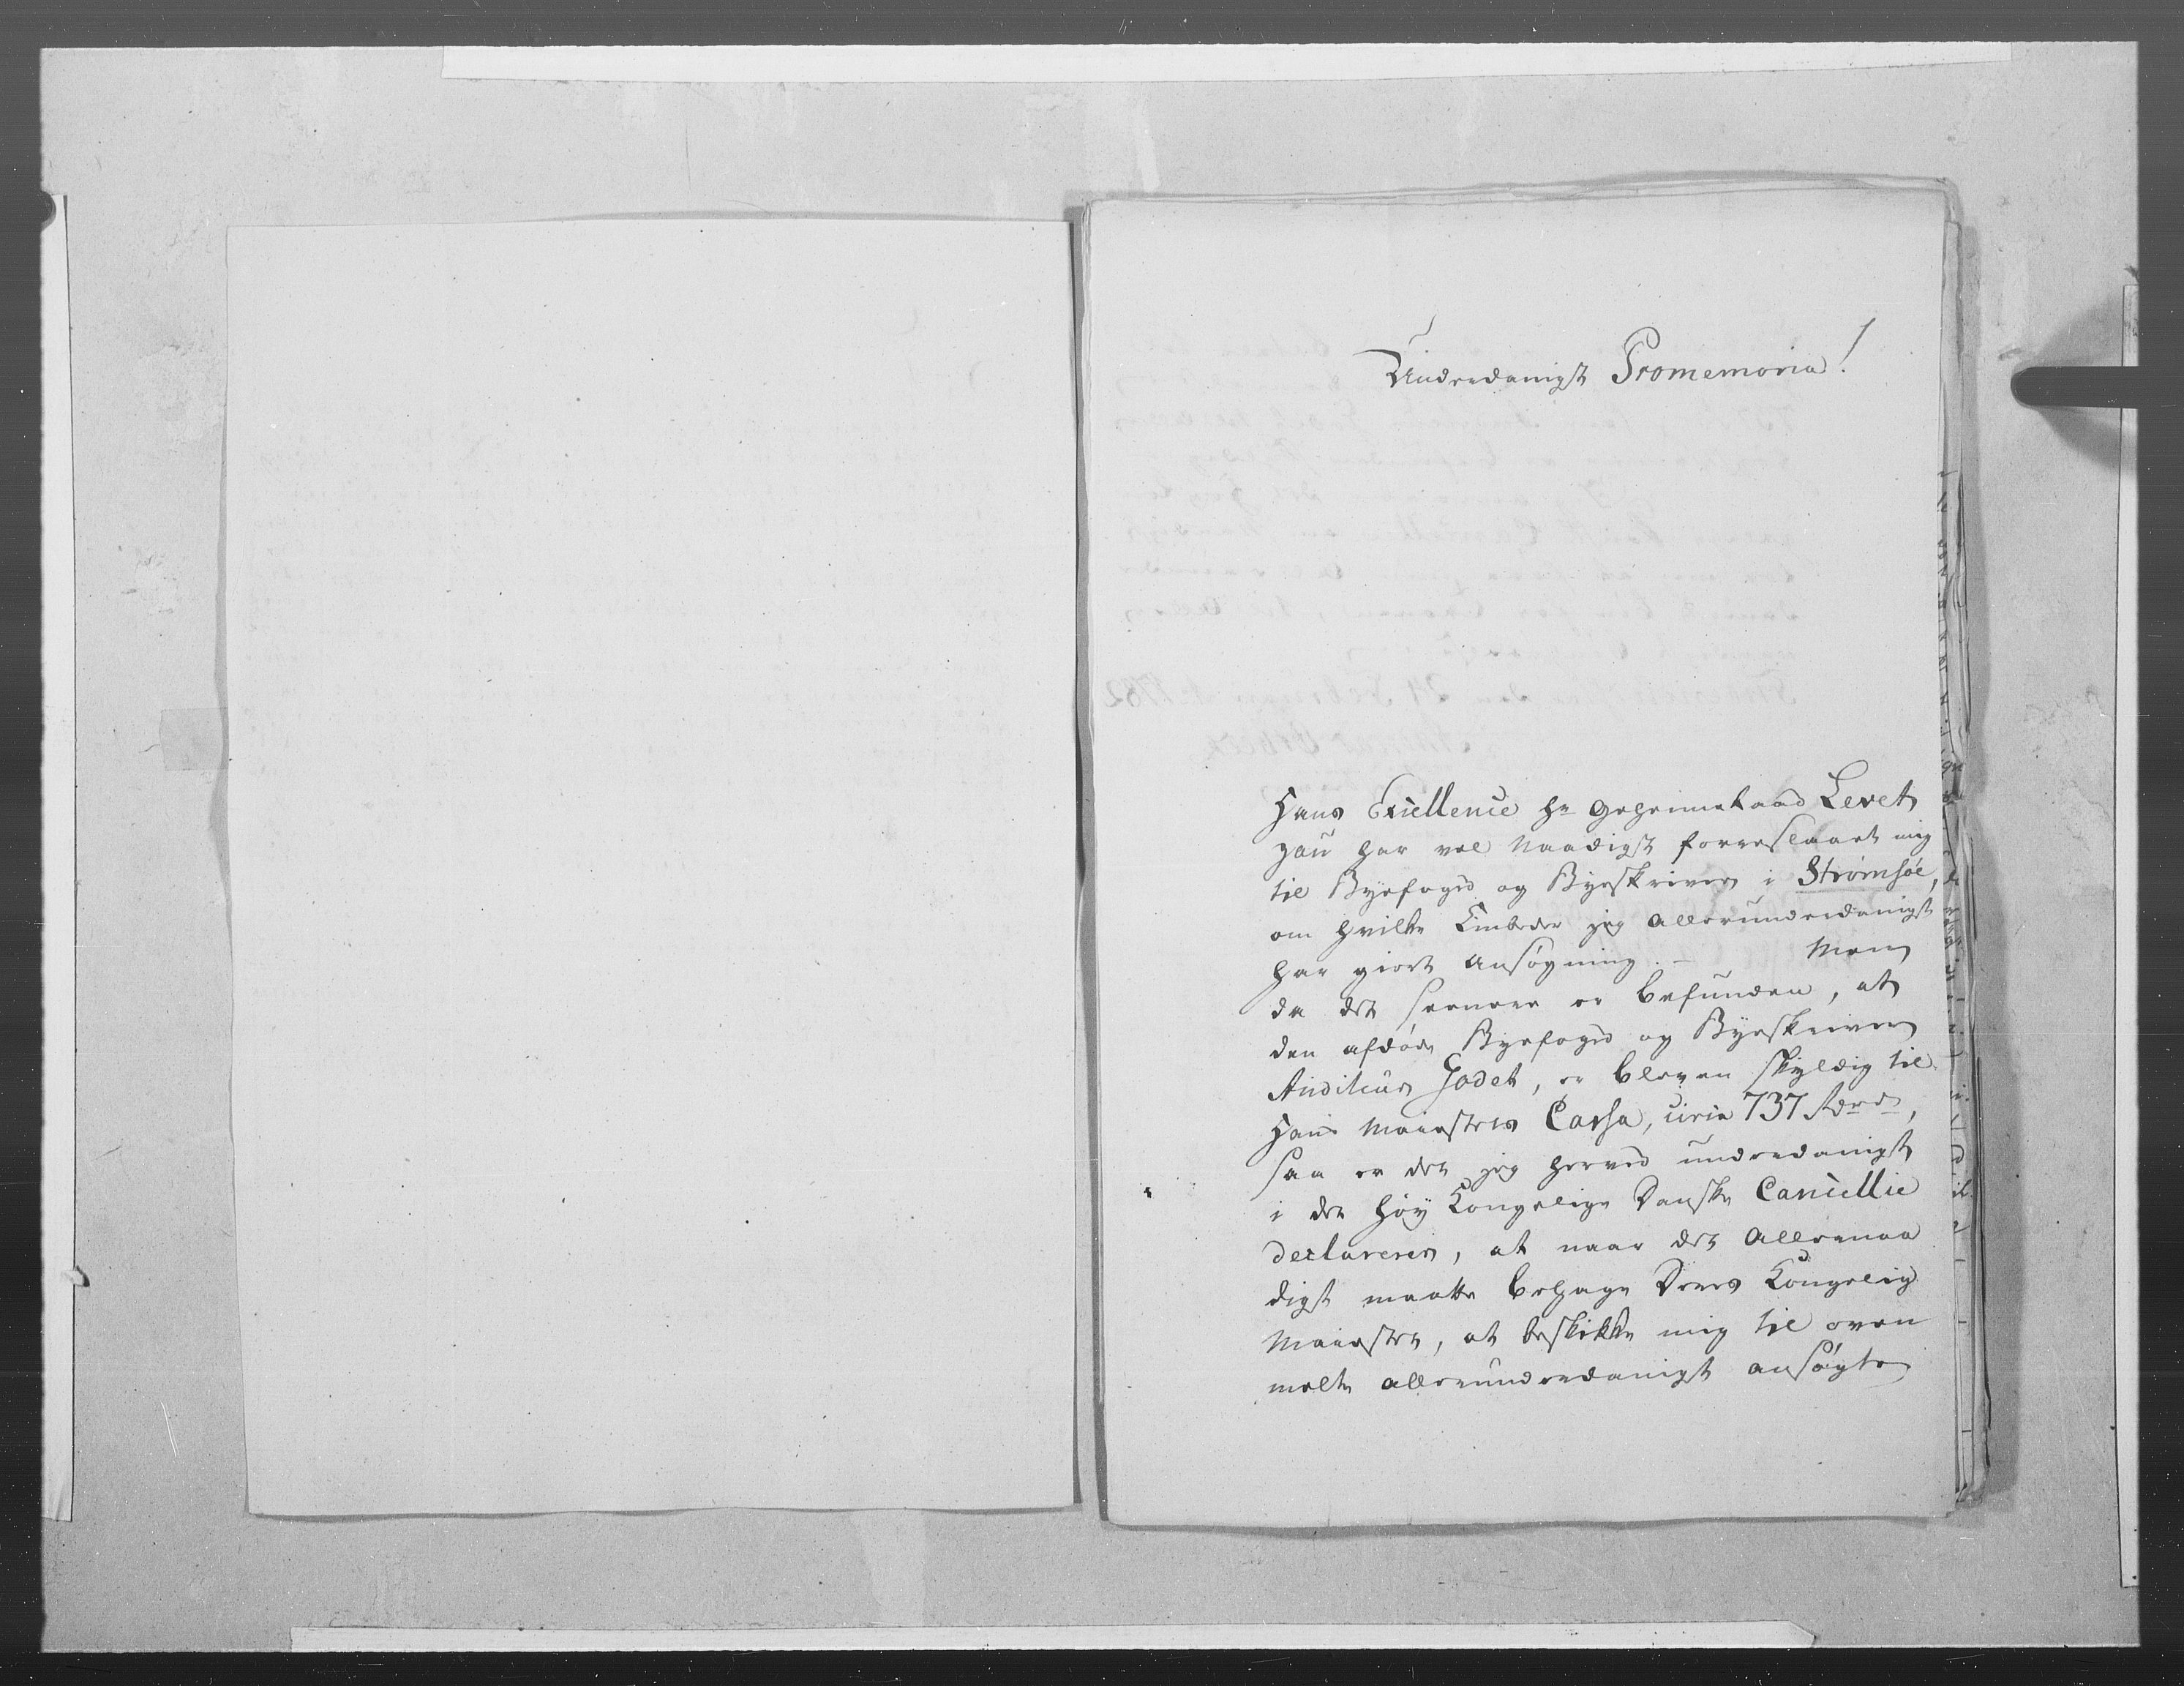 Underdanigst Promemoria!
Hans Excellence Hr Geheimeraad Levet
zau har vel Naadigst foreslaaet mig
til Byefoged og Byeskriver i Strømsøe,
om hvilke Embeder jeg allerunderdanigst
har giort Ansøgning. – Men
da det seenere er befunden, at
den afdøde Byefoged og Byeskriver
Auditeur Godet, er bleven skyldig til
Hans Maiestets Cassa, circa 737 Rdr,
saa er det jeg herved underdanigst
i det høy Kongelige Danske Cancellie
declarerer, at naar det Allernaa
digst maatte behage Deres Kongelig
Maiestet, at beskikke mig til oven
melte allerunderdanigst ansøgte